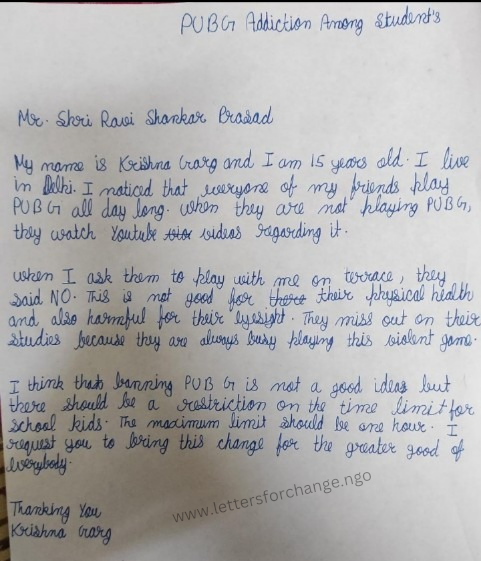 PUBG Addiction Among Student's
Mr. Shri Ravi Shankar Prasad
My name is Krishna Garg and I am 15 years old. I live
in Delhi. I noticed that everyone of my friends play
PUBG all day long. When they are not playing PUBG,
they watch Youtube vio videos regarding it.
When I ask them to play with me on terrace, they
said NO. This is not good for there their physical health
and also harmful for their eyesight. They miss out on their
studies because they are always busy playing this violent game.
I think that banning PUB G is not a good idea but
there should be a restriction on the time limit for
school kids. The maximum limit should be one hour. I
request you to bring this change for the greater good of
everybody.
www.lettersforchange.ngo
Thanking You
Krishna Garg